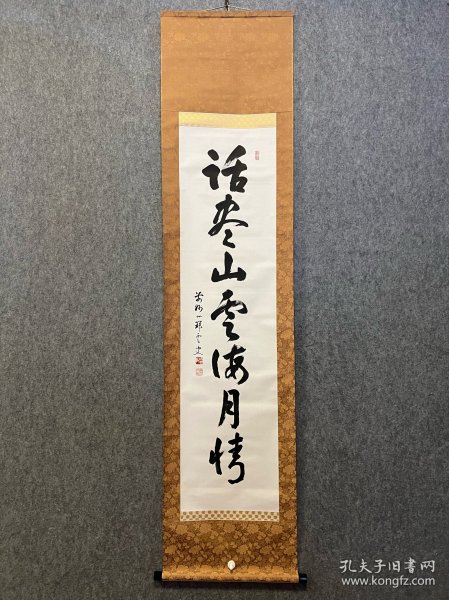 话尽山雲海月情
孔夫子旧书网
www.kongfz.com